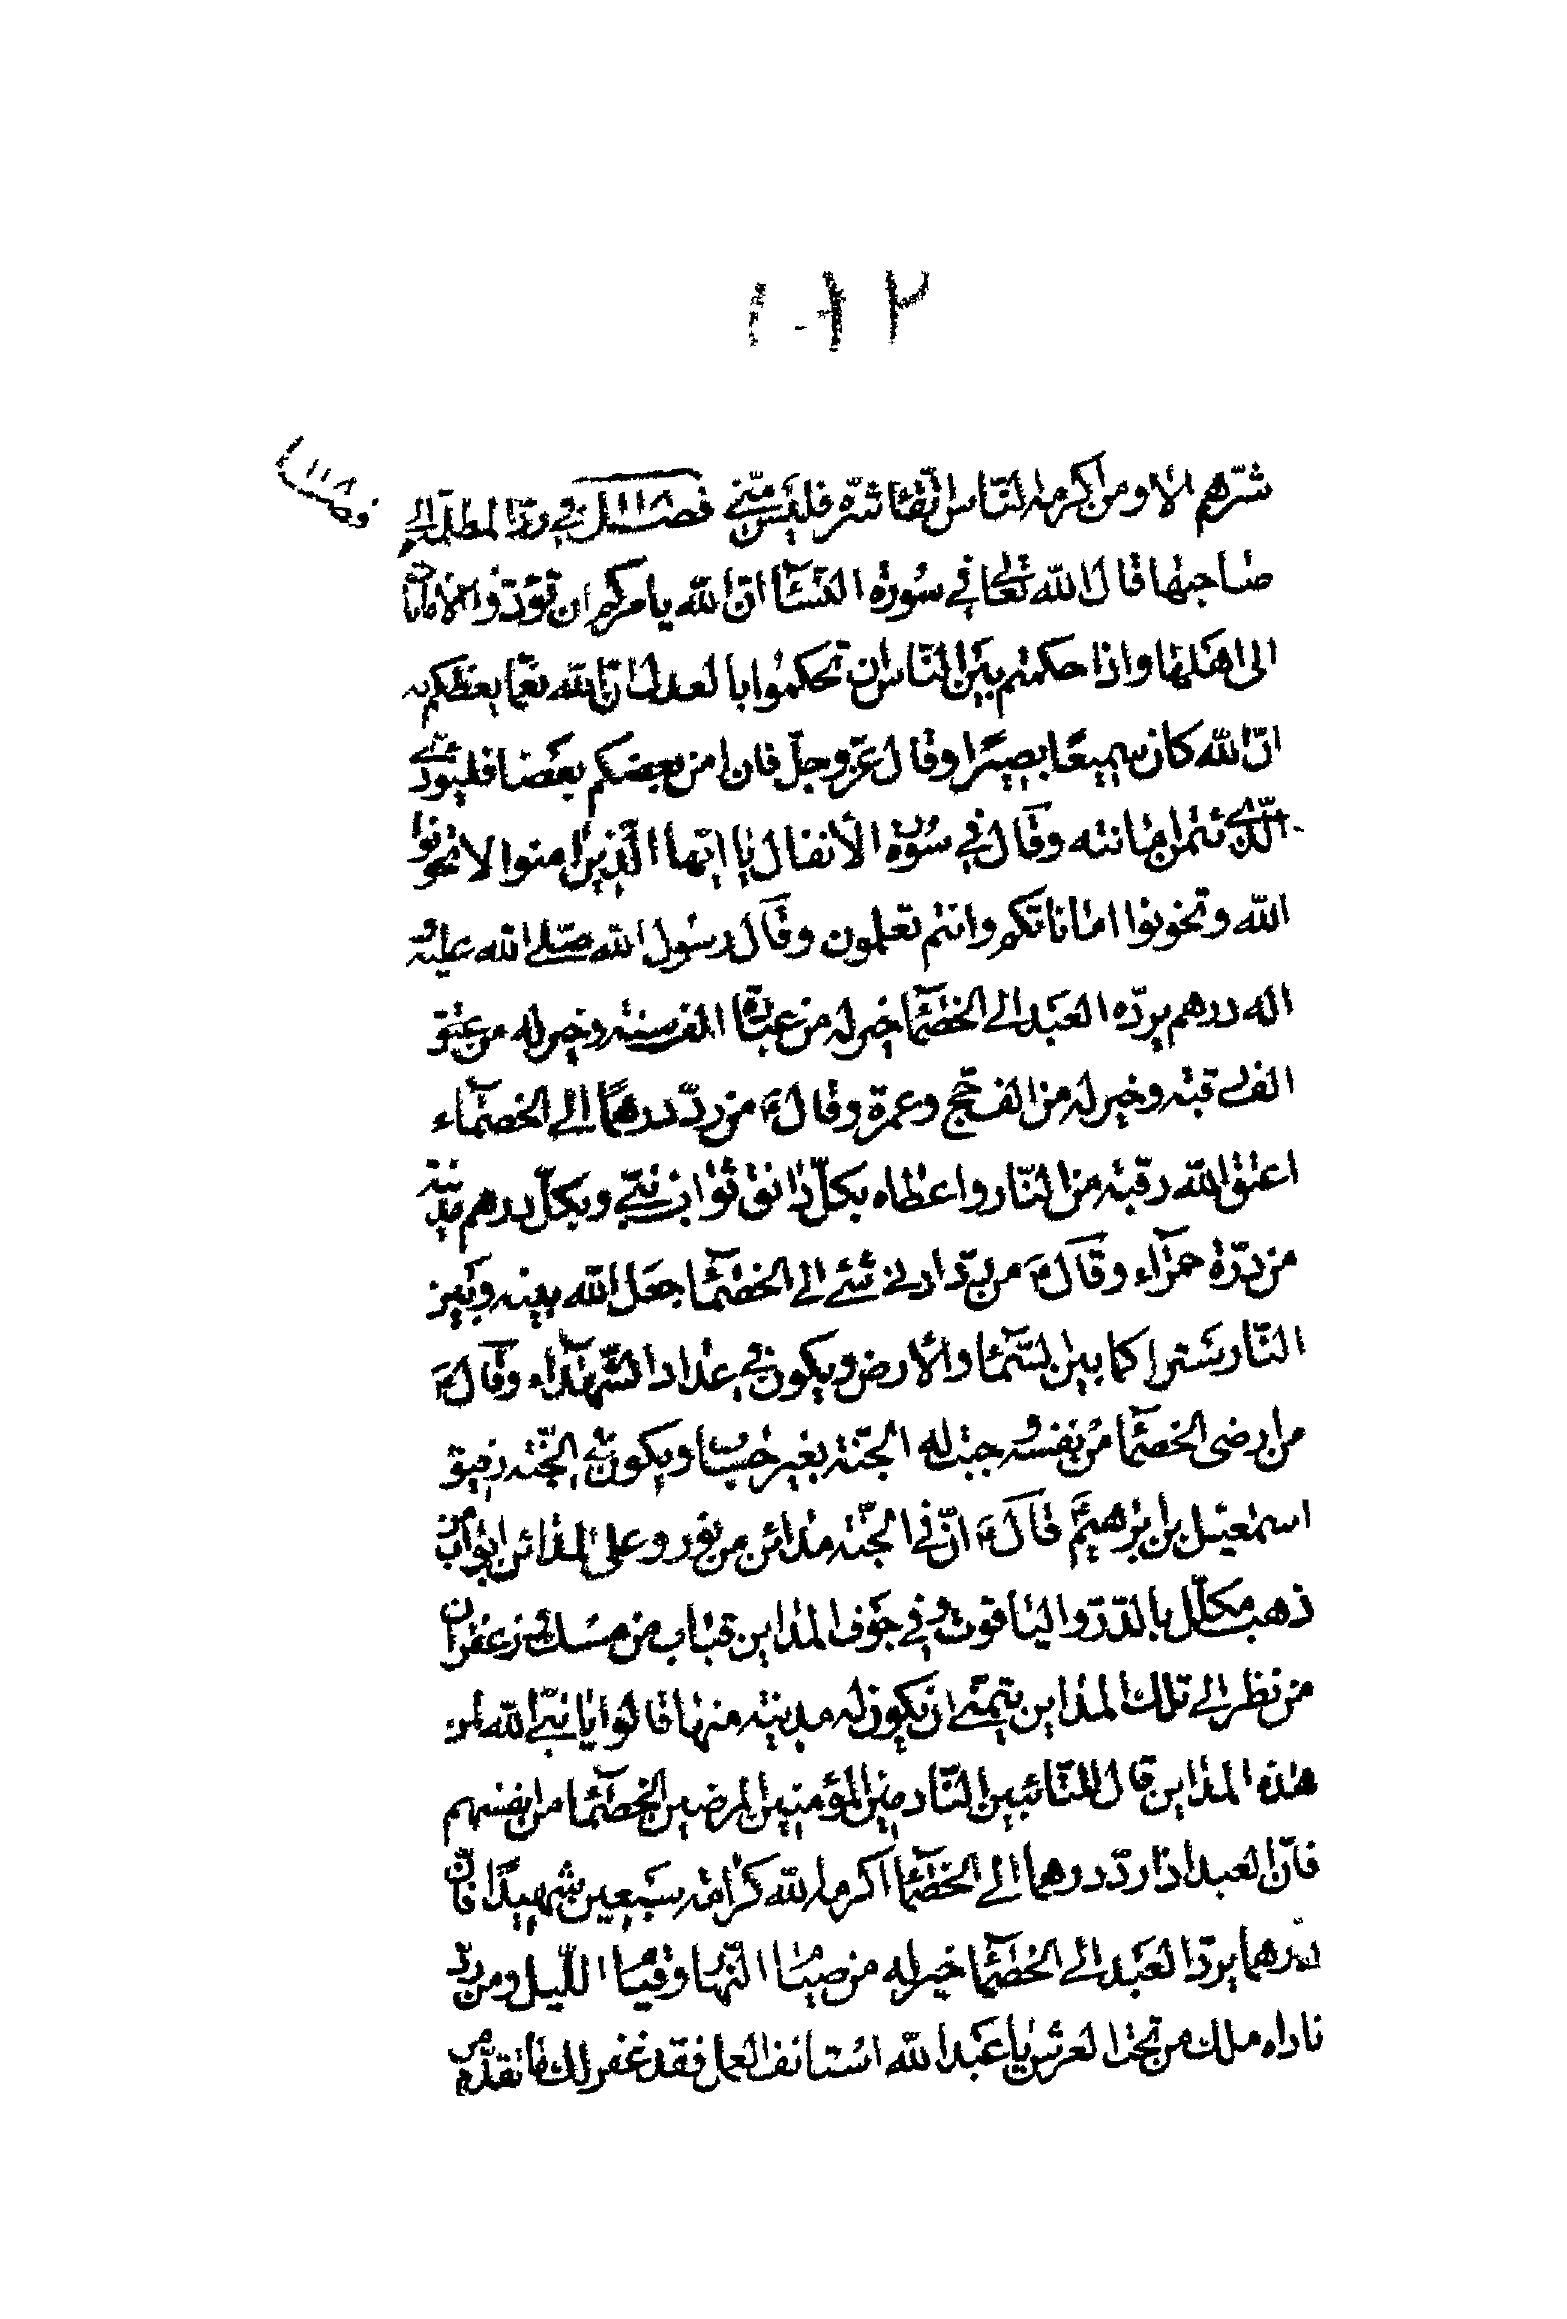 شرّهم الا ومن اكرمه النّاس اتّقاء شرّه فليس منّي فصل في ردّ المظالم الى
صاحبها قال الله تعالى في سورة النساء ان الله يامركم ان تؤدّوا الامانات
الى اهلها واذا حكمتم بين النّاس ان تحكموا بالعدل انّ الله نعمّا يعظكم به
انّ الله كان سميعًا بصيرًا وقال عزّ وجلّ فان امن بعضكم بعضا فليؤدّ
الّذي ائتمن امانته وقال في سورة الأنفال يا ايّها الّذين امنوا لا تخونوا
الله وتخونوا اماناتكم وانتم تعلمون وقال رسول الله صلّى الله عليه و
اله درهم يردّه العبد الى الخصماء خير له من عبادة الف سنة وخير له من عتق
الف رقبة وخير له من الف حج وعمرة وقال ع من ردّ درهمًا الى الخصماء
اعتق الله رقبته من النّار واعطاه بكلّ دانق ثواب نبيّ وبكلّ درهم مدينة
من درّة حمراء وقال ع من ردّ ادنى شئ الى الخصماء جعل الله بينه وبين
النّار سترا كما بين السّماء والأرض ويكون في عداد الشّهداء وقال ع
من ارضى الخصماء من نفسه وجبت له الجنّة بغير حساب ويكون في الجنّة رفيق
اسمعيل بن ابرهيم قال ع انّ في الجنّة مدائن من نور وعلى المدائن ابواب من
ذهب مكلّل بالدّرّ والياقوت وفي جوف المداين قباب من مسك وزعفران
من نظر الى تلك المداين يتمنّى ان يكون له مدينة منها قالوا يا نبيّ الله لمن
هذه المداين قال للتّائبين النّادمين المؤمنين المرضين الخصماء من انفسهم
فانّ العبد اذا ردّ درهما الى الخصماء اكرمه الله كرامة سبعين شهيدًا فانّ
درهما يردّ العبد الى الخصماء خير له من صيام النّهار وقيام اللّيل ومن ردّ
ناداه ملك من تحت العرش يا عبد الله استانف العمل فقد غفر لك ما تقدّم من